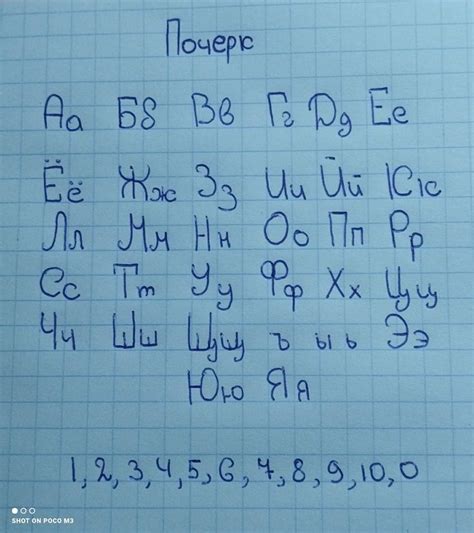 Почерк
Аа Бб Вв Гг Дд Ее
Ёё Жж Зз Ии Йй Кк
Лл Мм Нн Оо Пп Рр
Сс Тт Уу Фф Хх Цц
Чч Шш Щщ ъ ы ь Ээ
Юю Яя
1, 2, 3, 4, 5, 6, 7, 8, 9, 10, 0
SHOT ON POCO M3